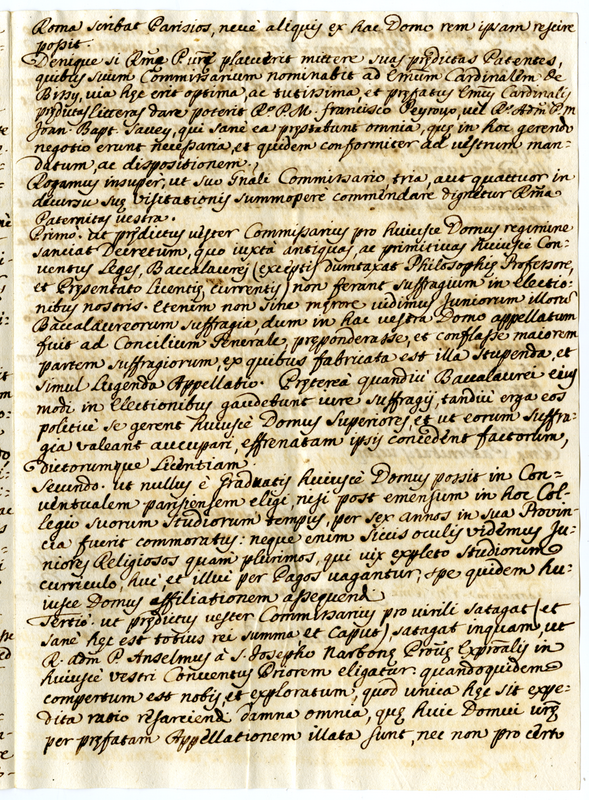 Roma scribat Parisios, neve aliquis ex hac Domo rem ipsam rescire
possit.
Denique si Rmę P. urę placuerit mittere suas prędictas Patentes,
quibus suum Commissarium nominabit ad Emum Cardinalem de
Bissy, via hęc erit optima, ac tutissima, et pręfatus Emus Cardinalis
prędictas litteras dare poterit Rdo P. M. Francisco Peyrouo, vel Rdo Adm P. M.
Joan. Bapt. Savey, qui sane ea pręstabunt omnia, quę in hoc gerendo
negotio erunt necessaria, et quidem conformiter ad vestrum man=
datum, ac dispositionem.
Rogamus insuper, ut suo Gnali Commissario tria, aut quattuor in
decursu suę visitationis summopere commendare dignetur Rma
Paternitas vestra.
Primo. ut prędictus vester Commissarius pro huiusce Domus regimine
sanciat Decretum, quo iuxta antiquas, ac primitivas huiusce Con=
ventus Leges, Baccalaurei (excepti dumtaxat Philosophię Professore,
et Pręsentato Licentię currentis) non ferant suffragium in electio=
nibus nostris. Etenim non sine męrore vidimus Juniorum illorum
Baccalaureorum suffragia, dum in hac vestra Domo appellatum
fuit ad Concilium Generale, pręponderasse, et conflasse maiorem
partem suffragiorum, ex quibus fabricata est illa stupenda, et
simul lugenda Appellatio. Pręterea quandiu Baccalaurei eius
modi in electionibus gaudebunt iure suffragij, tandiu erga eos
politice se gerent huiusce Domus Superiores, et ut eorum suffra=
gia valeant aucupari, effrenatam ipsis concedent factorum,
dictorumque licentiam.
Secundo. ut nullus è Graduatis huiusce Domus possit in Con=
ventualem parisiensem eligi, nisi post emensum in hoc Col=
legio suorum studiorum tempus, per sex annos in sua Provin=
cia fuerit commoratus: neque enim siccis oculis videmus Ju=
niores Religiosos quam plurimos, qui vix expleto studiorum
curriculo, huc, et illuc per Pagos vagantur, spe quidem hu=
iusce Domus affiliationem assequendi.
Tertio. ut prędictus vester Commissarius pro virili satagat (et
sane hęc est totius rei summa et caput) satagat inquam, ut
R. adm P. Anselmus à S. Josepho Narbonę Proūę Exproalis in
huiusce vestri Conventus Priorem eligatur: quandoquidem
compertum est nobis, et exploratum, quod unica hęc sit expe=
dita ratio resarciendi damna omnia, quę huic Domui urę
per pręfatam Appellationem illata sunt, nec non pro certo